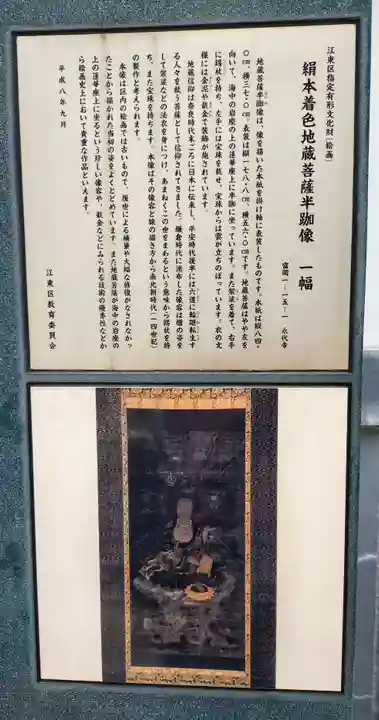 江東区指定有形文化財(絵画)
絹本着色地蔵菩薩半跏像 一幅
富岡一―一五―一 永代寺
地蔵菩薩半跏像は、像を描いた本紙を掛け軸に表装したものです。本紙は縦八四・
〇㎝、横三七・〇㎝、表装は縦一七八・八㎝、横五六・〇㎝です。地蔵菩薩はやや左を
向いて、海中の岩座の上の蓮華座上に半跏に坐っています。また袈裟を着て、右手
に錫杖を持ち、左手には宝珠を載せ、宝珠からは雲が立ちのぼっています。衣の文
様には金泥や截金で装飾が施されています。
地蔵信仰は奈良時代末ごろに日本に伝来し、平安時代後半には六道に輪廻転生す
る人々を救う菩薩として信仰されてきました。鎌倉時代に流布した像容は僧の姿を
して袈裟などの法衣を身につけ、あまねくこの世をまわるという意味から錫杖を持
ち、また宝珠を持ちます。本像はその像容と線の描き方から南北朝時代(一四世紀)
の製作と考えられます。
本像は区内の絵画では古いもので、後世による補筆や大幅な修復がなされなかっ
たことから描かれた当初の姿をよくとどめています。また地蔵菩薩が海中の岩座の
上の蓮華座上に坐るという珍しい像容や、截金などにみられる技術の優秀性などか
ら絵画史上において貴重な作品といえます。
平成八年九月
江東区教育委員会